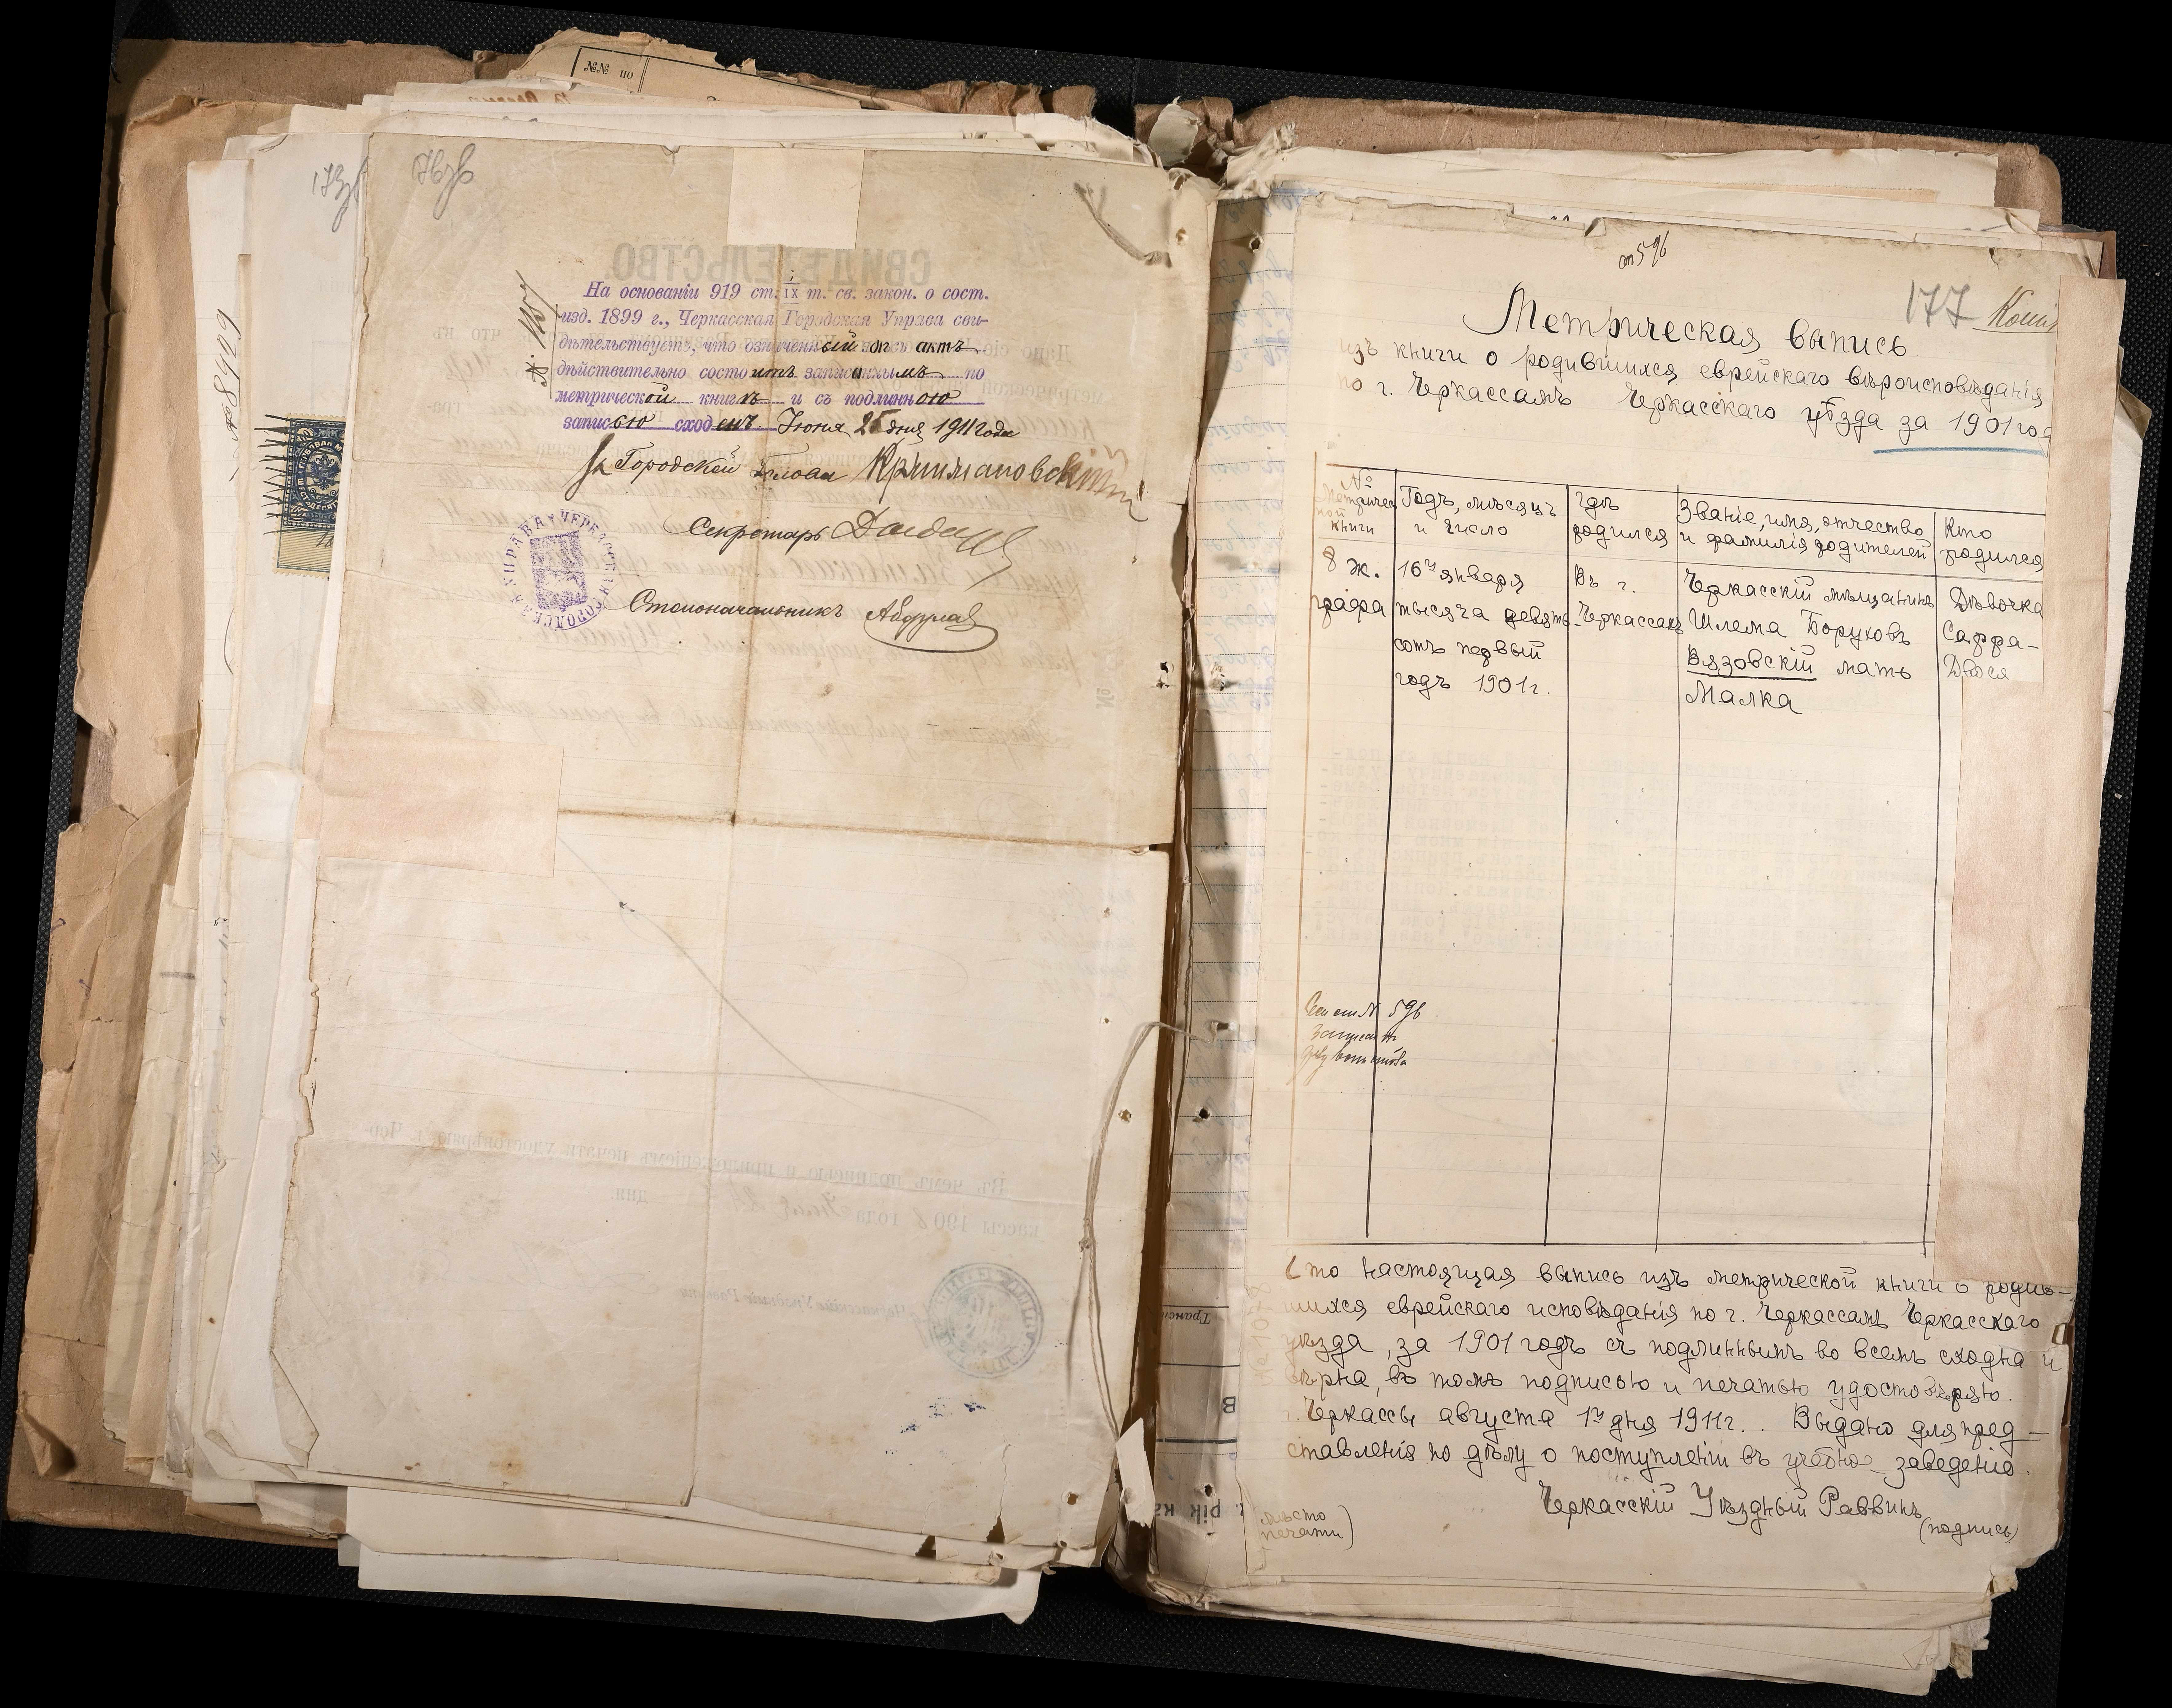 №№ по
173
176
На основаніи 919 ст. IX т. св. закон. о сост.
изд. 1899 г., Черкасская Городская Управа сви-
дѣтельствуетъ, что означенный здѣсь актъ
дѣйствительно состоитъ записаннымъ по
метрической книгѣ и съ подлинною
записью сходенъ. Іюня 25 дня 1911 года
Городской Голова
Секретарь
Столоначальникъ
ЧЕРКАССКАЯ ГОРОДСКАЯ УПРАВА
ст 596
177 Копія
Метрическая выпись
изъ книги о родившихся еврейскаго вѣроисповѣданія
по г. Черкассамъ Черкасскаго уѣзда за 1901 год
№ Метрической книги
Годъ, мѣсяцъ и число
Гдѣ родился
Званіе, имя, отчество и фамилія родителей
Кто родился
8 ж. графа
16го января тысяча девять сотъ первый годъ 1901 г.
Въ г. Черкассахъ
Черкасскій мѣщанинъ Шлема Боруховъ Вязовскій мать Малка
Дѣвочка Сарра-Двося
596
Что настоящая выпись изъ метрической книги о родив-
шихся еврейскаго исповѣданія по г. Черкассамъ Черкасскаго
уѣзда, за 1901 годъ съ подлиннымъ во всемъ сходна и
вѣрна, въ томъ подписью и печатью удостовѣряю.
г. Черкассы августа 1го дня 1911 г. Выдано для пред-
ставленія по дѣлу о поступленіи въ учебное заведеніе.
Черкасскій Уѣздный Раввинъ
(подпись)
мѣсто
печати)